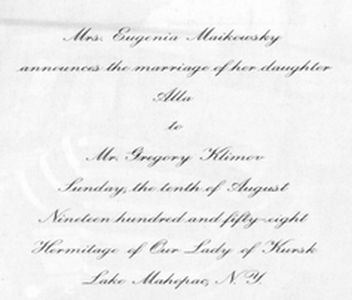 Mrs. Eugenia Maikowsky
announces the marriage of her daughter
Alla
to
Mr. Gregory Klimov
Sunday, the tenth of August
Nineteen hundred and fifty-eight
Hermitage of Our Lady of Kursk
Lake Mahopac, N.Y.